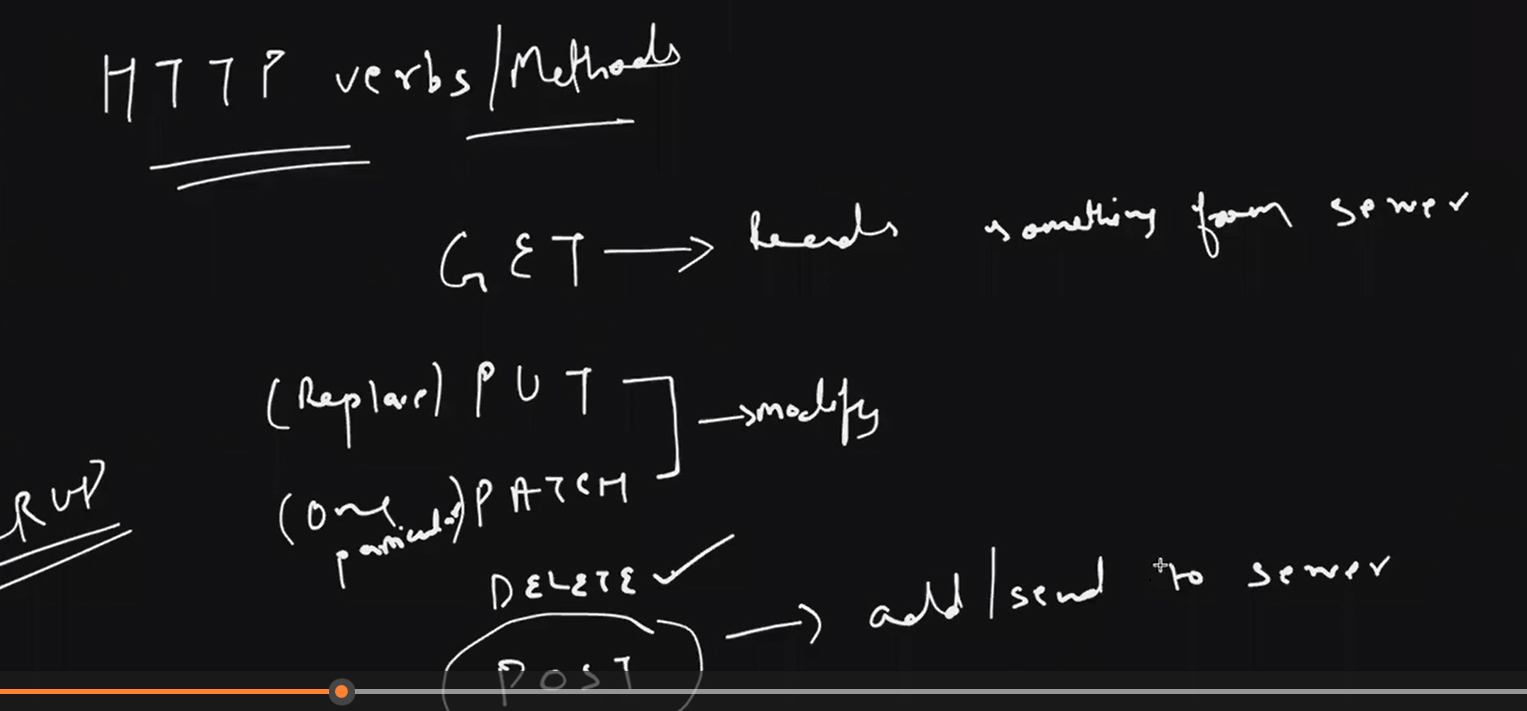 HTTP verbs/Methods
GET → Reads something from server
(Replace) PUT
→ modify
(One particular) PATCH
RUD
DELETE ✓
POST → add/send to server